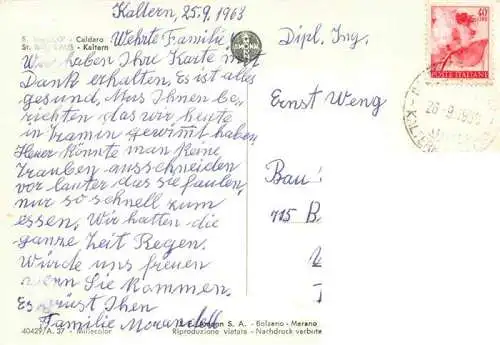 Kaltern, 25.9.1963
S. - Caldaro
St. - Kaltern
Wehrte Familie
Wir haben Ihre Karte mit
Dank erhalten, Es ist alles
gesund, Mus Ihnen be-
richten das wir heute
in Tramen gewimt haben,
Heuer könnte man keine
Trauben ausschneiden
vor lauter das sie faulen,
nur so schnell zum
essen. Wir hatten die
ganze Zeit Regen.
Würde uns freuen
wenn Sie kommen.
Es grüst Ihen
Familie Morandell
40429/A. 37 - Millecolor
AMONN
Dipl. Ing.
Ernst Weng
Bau
715 B
S. A. - Bolzano - Merano
Riproduzione vietata - Nachdruck verbote
40
LIRE
POSTE ITALIANE
26.9.19